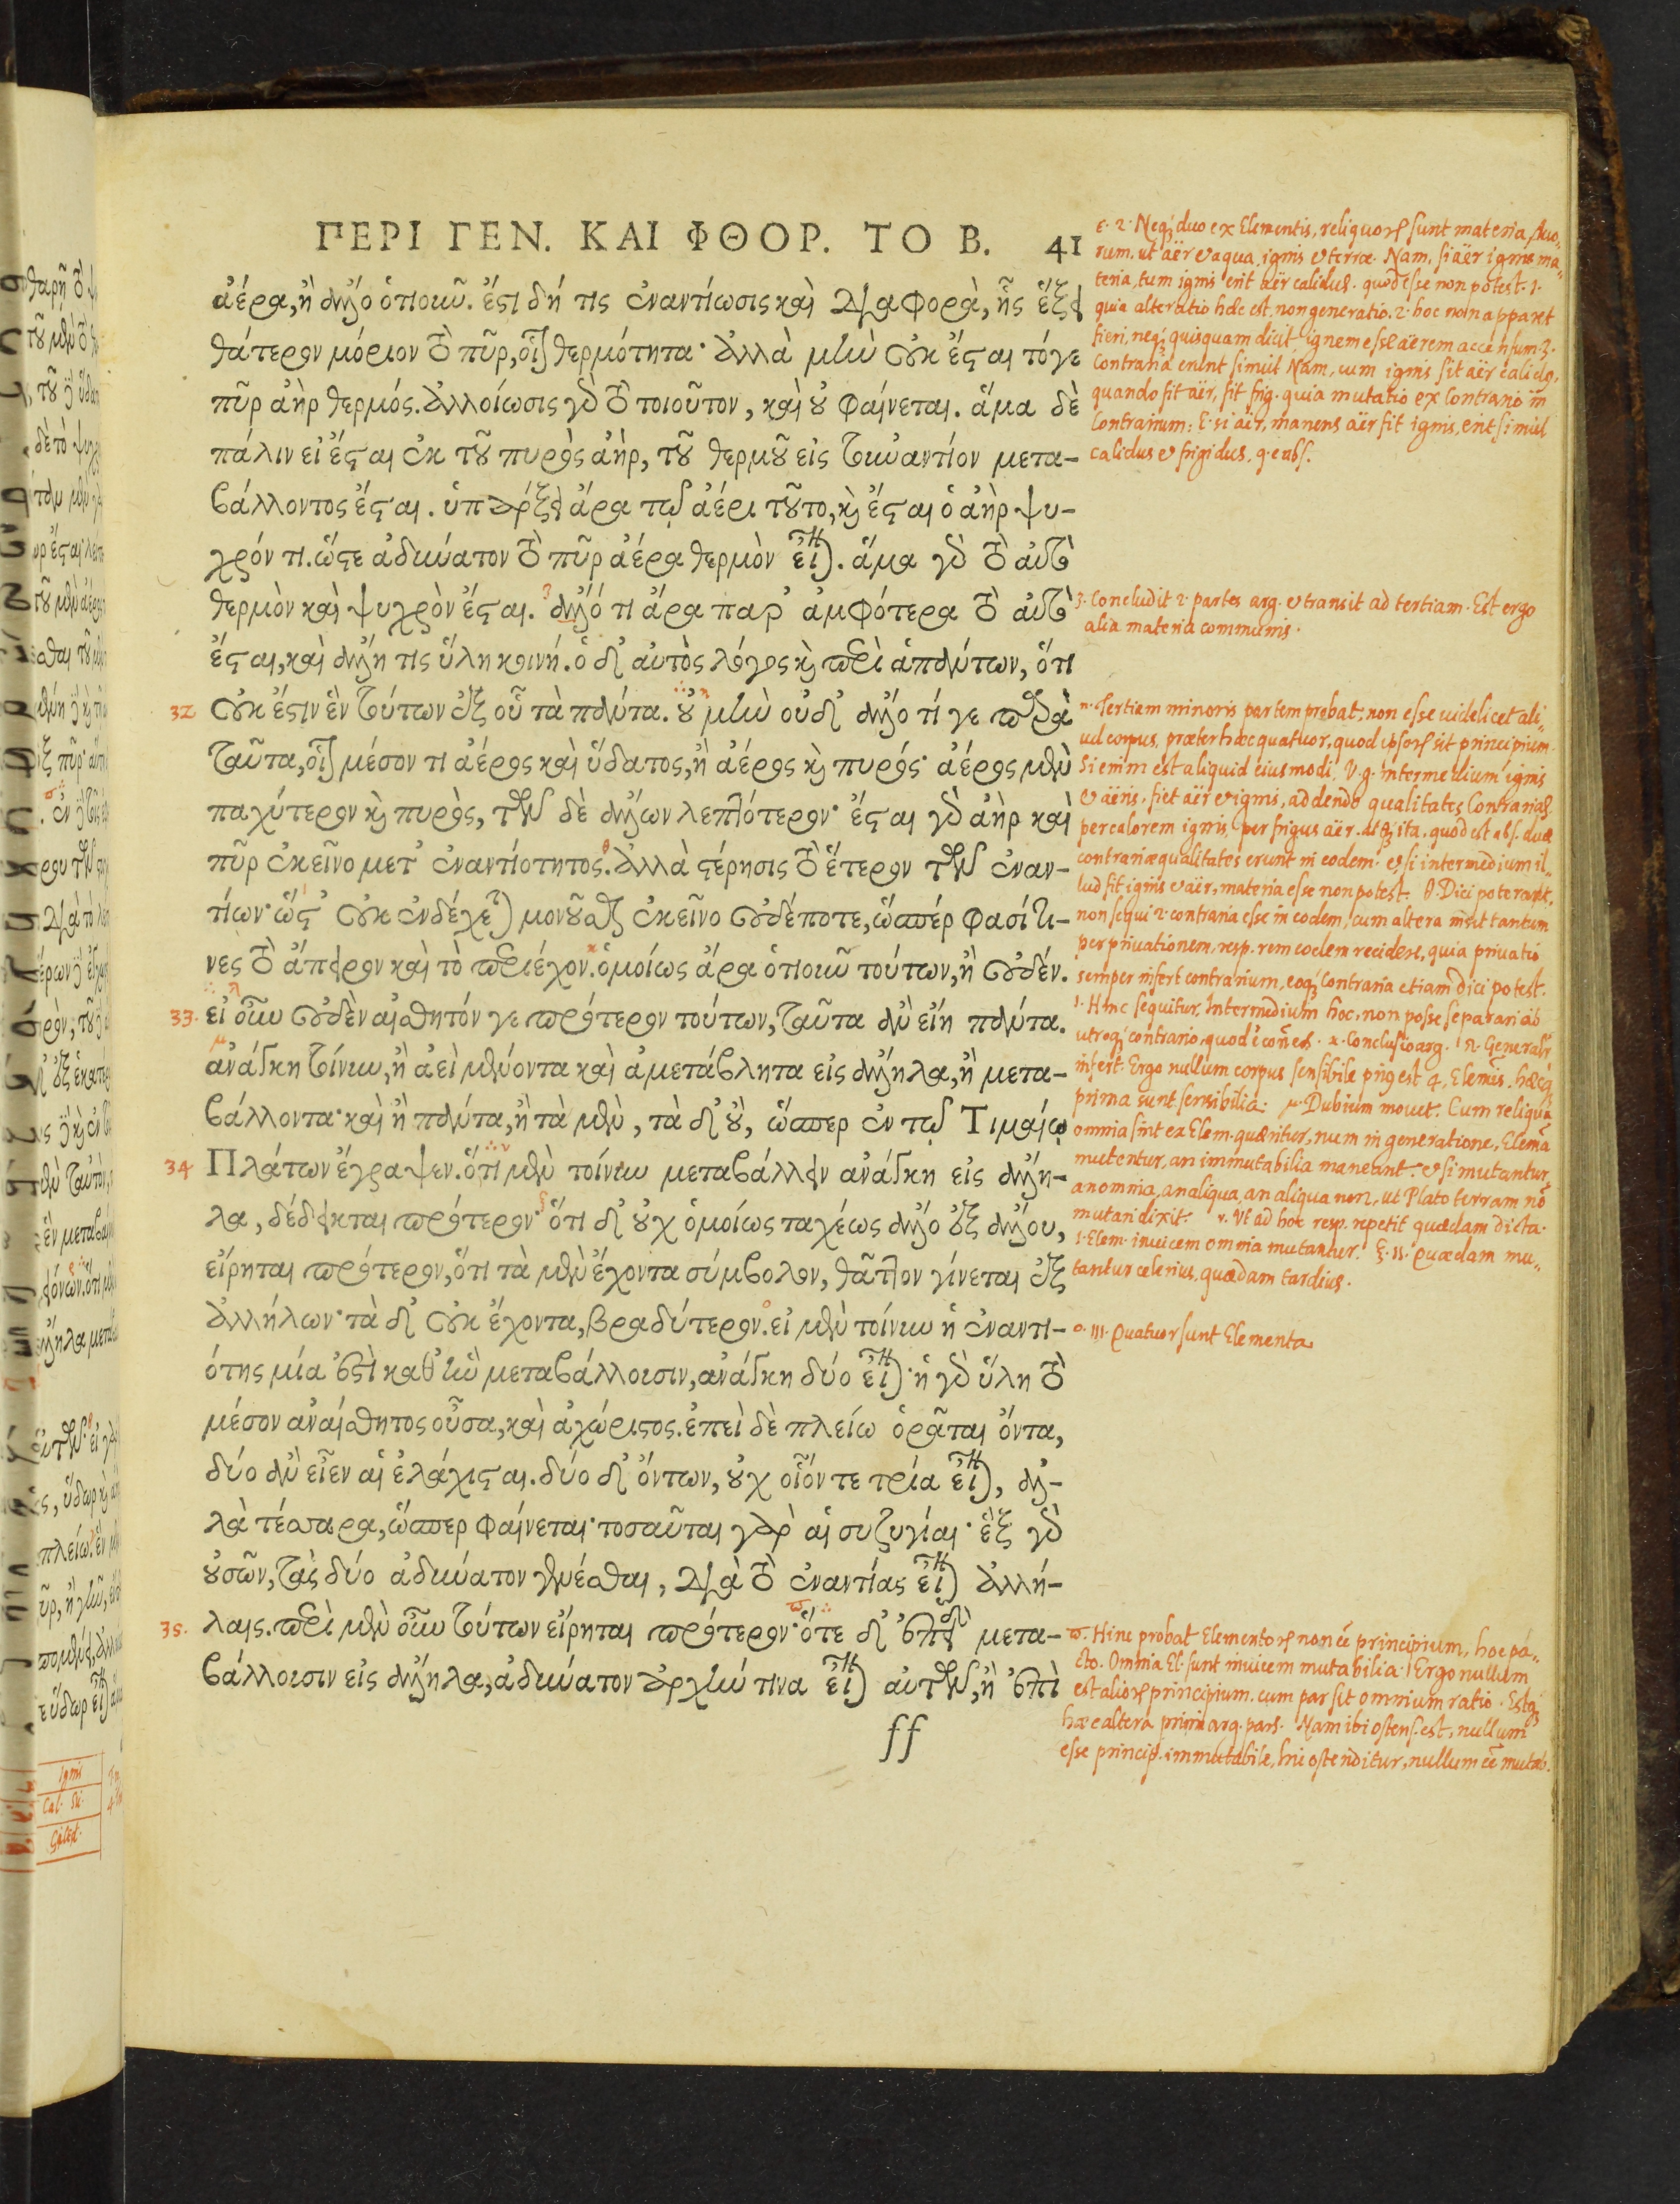 ΠΕΡΙ ΓΕΝ. ΚΑΙ ΦΘΟΡ. ΤΟ Β. 41
ἀέρα, ἢ ἄλλο ὁτιοιῶ. ἔστι δή τις ἐναντίωσις καὶ διαφορὰ, ἧς ἕξει
θάτερον μόριον τὸ πῦρ, οἷον θερμότητα· ἀλλὰ μὴν οὐκ ἔσται τόγε
πῦρ ἀὴρ θερμός. ἀλλοίωσις γὰρ τὸ τοιοῦτον, καὶ οὐ φαίνεται. ἅμα δὲ
πάλιν εἰ ἔσται ἐκ τοῦ πυρὸς ἀὴρ, τοῦ θερμοῦ εἰς τοὐναντίον μετα-
βάλλοντος ἔσται. ὑπάρξει ἄρα τῷ ἀέρι τοῦτο, καὶ ἔσται ὁ ἀὴρ ψυ-
χρόν τι. ὥστε ἀδύνατον τὸ πῦρ ἀέρα θερμὸν εἶναι. ἅμα γὰρ τὸ αὐτὸ
θερμὸν καὶ ψυχρὸν ἔσται. ἄλλό τι ἄρα παρ' ἀμφότερα τὸ αὐτὸ
ἔσται, καὶ ἄλλη τις ὕλη κοινή. ὁ δ' αὐτὸς λόγος καὶ περὶ ἁπάντων, ὅτι
32 οὐκ ἔστιν ἓν τούτων ἐξ οὗ τὰ πάντα. οὐ μὴν οὐδ' ἄλλο τί γε παρὰ
ταῦτα, οἷον μέσον τι ἀέρος καὶ ὕδατος, ἢ ἀέρος καὶ πυρός· ἀέρος μὲν
παχύτερον καὶ πυρὸς, τῶν δὲ ἄλλων λεπτότερον· ἔσται γὰρ ἀὴρ καὶ
πῦρ ἐκεῖνο μετ' ἐναντιότητος. ἀλλὰ στέρησις τὸ ἕτερον τῶν ἐναν-
τίων· ὥστ' οὐκ ἐνδέχεται μονοῦσθαι ἐκεῖνο οὐδέποτε, ὥσπερ φασί τι-
νες τὸ ἄπειρον καὶ τὸ περιέχον. ὁμοίως ἄρα ὁτιοῦν τούτων, ἢ οὐδέν.
33. εἰ οὖν οὐδὲν αἰσθητόν γε πρότερον τούτων, ταῦτα ἂν εἴη πάντα.
ἀνάγκη τοίνυν, ἢ ἀεὶ μένοντα καὶ ἀμετάβλητα εἰς ἄλληλα, ἢ μετα-
βάλλοντα· καὶ ἢ πάντα, ἢ τὰ μὲν, τὰ δ' οὔ, ὥσπερ ἐν τῷ Τιμαίῳ
34 Πλάτων ἔγραψεν. ὅτι μὲν τοίνυν μεταβάλλειν ἀνάγκη εἰς ἄλλη-
λα, δέδεικται πρότερον· ὅτι δ' οὐχ ὁμοίως ταχέως ἄλλο ἐξ ἄλλου,
εἴρηται πρότερον, ὅτι τὰ μὲν ἔχοντα σύμβολον, θᾶττον γίνεται ἐξ
ἀλλήλων· τὰ δ' οὐκ ἔχοντα, βραδύτερον. εἰ μὲν τοίνυν ἡ ἐναντι-
ότης μία ἐστὶ καθ' ἣν μεταβάλλουσιν, ἀνάγκη δύο εἶναι· ἡ γὰρ ὕλη τὸ
μέσον ἀναίσθητος οὖσα, καὶ ἀχώριστος. ἐπεὶ δὲ πλείω ὁρᾶται ὄντα,
δύο ἂν εἶεν αἱ ἐλάχισται. δύο δ' ὄντων, οὐχ οἷόν τε τρία εἶναι, ἀλ-
λὰ τέσσαρα, ὥσπερ φαίνεται· τοσαῦται γὰρ αἱ συζυγίαι· ἓξ γὰρ
οὐσῶν, τὰς δύο ἀδύνατον γενέσθαι, διὰ τὸ ἐναντίας εἶναι ἀλλή-
35. λαις. περὶ μὲν οὖν τούτων εἴρηται πρότερον· ὅτε δ' ἐπειδὴ μετα-
βάλλουσιν εἰς ἄλληλα, ἀδύνατον ἀρχήν τινα εἶναι αὐτῶν, ἢ ἐπὶ
ff
ε. 2. Neq; duo ex Elementis, reliquorum sunt materia, duo-
rum. ut aër et aqua, ignis et terræ. Nam, si aër ignis ma-
teria, tum ignis erit aër calidus. quod esse non potest. 1.
quia alteratio hæc est, non generatio. 2. hoc non apparet
fieri, neq; quisquam dicit ignem esse aërem accensum. 3.
Contraria erunt simul. Nam, cum ignis sit aër calidus,
quando fit aër, fit frig. quia mutatio ex Contrario in
Contrarium: E. si aër, manens aër fit ignis, erit simul
calidus et frigidus, q. e abs.
3. Concludit 2. partes arg. et transit ad tertiam. Est ergo
alia materia communis.
η. Tertiam minoris partem probat, non esse videlicet ali-
ud corpus, præter hæc quatuor, quod ipsorum sit principium.
Si enim est aliquid eiusmodi, V.g. intermedium ignis
et aëris, fiet aër et ignis, addendo qualitates Contrarias
per calorem ignis, per frigus aër. ita, quod est abs. duæ
contrariæ qualitates erunt in eodem. et si intermedium il-
lud sit ignis et aër, materia esse non potest. θ. Dici poterant,
non sequi 2. contraria esse in eodem, cum altera insit tantum
per privationem, resp. rem eodem recidere, quia privatio
semper infert contrarium, eoq; Contraria etiam dici potest.
ι. Hinc sequitur, Intermedium hoc, non posse separari ab
utroq; contrario, quod è coñes. κ. Conclusio arg. λ. Generalr
infert. Ergo nullum corpus sensibile prius est 4. Elemtis. hæcq;
prima sunt sensibilia. μ. Dubium movet. Cum reliqua
omnia sint ex Elem. quæritur, num in generatione, Elemta
mutentur, an immutabilia maneant. et si mutantur,
an omnia, an aliqua, an aliqua non, ut Plato terram nõ
mutari dixit. ν. Ut ad hoc resp. repetit quædam dicta.
1. Elem. invicem omnia mutantur. ξ. II. Quædam mu-
tantur celerius, quædam tardius.
ο. III. Quatuor sunt Elementa
π. Hinc probat Elementorum non eē principium, hoc pa-
cto. Omnia El. sunt invicem mutabilia. Ergo nullum
est aliorum principium. cum par sit omnium ratio. Estq;
hæc altera primi arg. pars. Nam ibi ostens. est, nullum
esse princip. immutabile, hic ostenditur, nullum eē mutab.